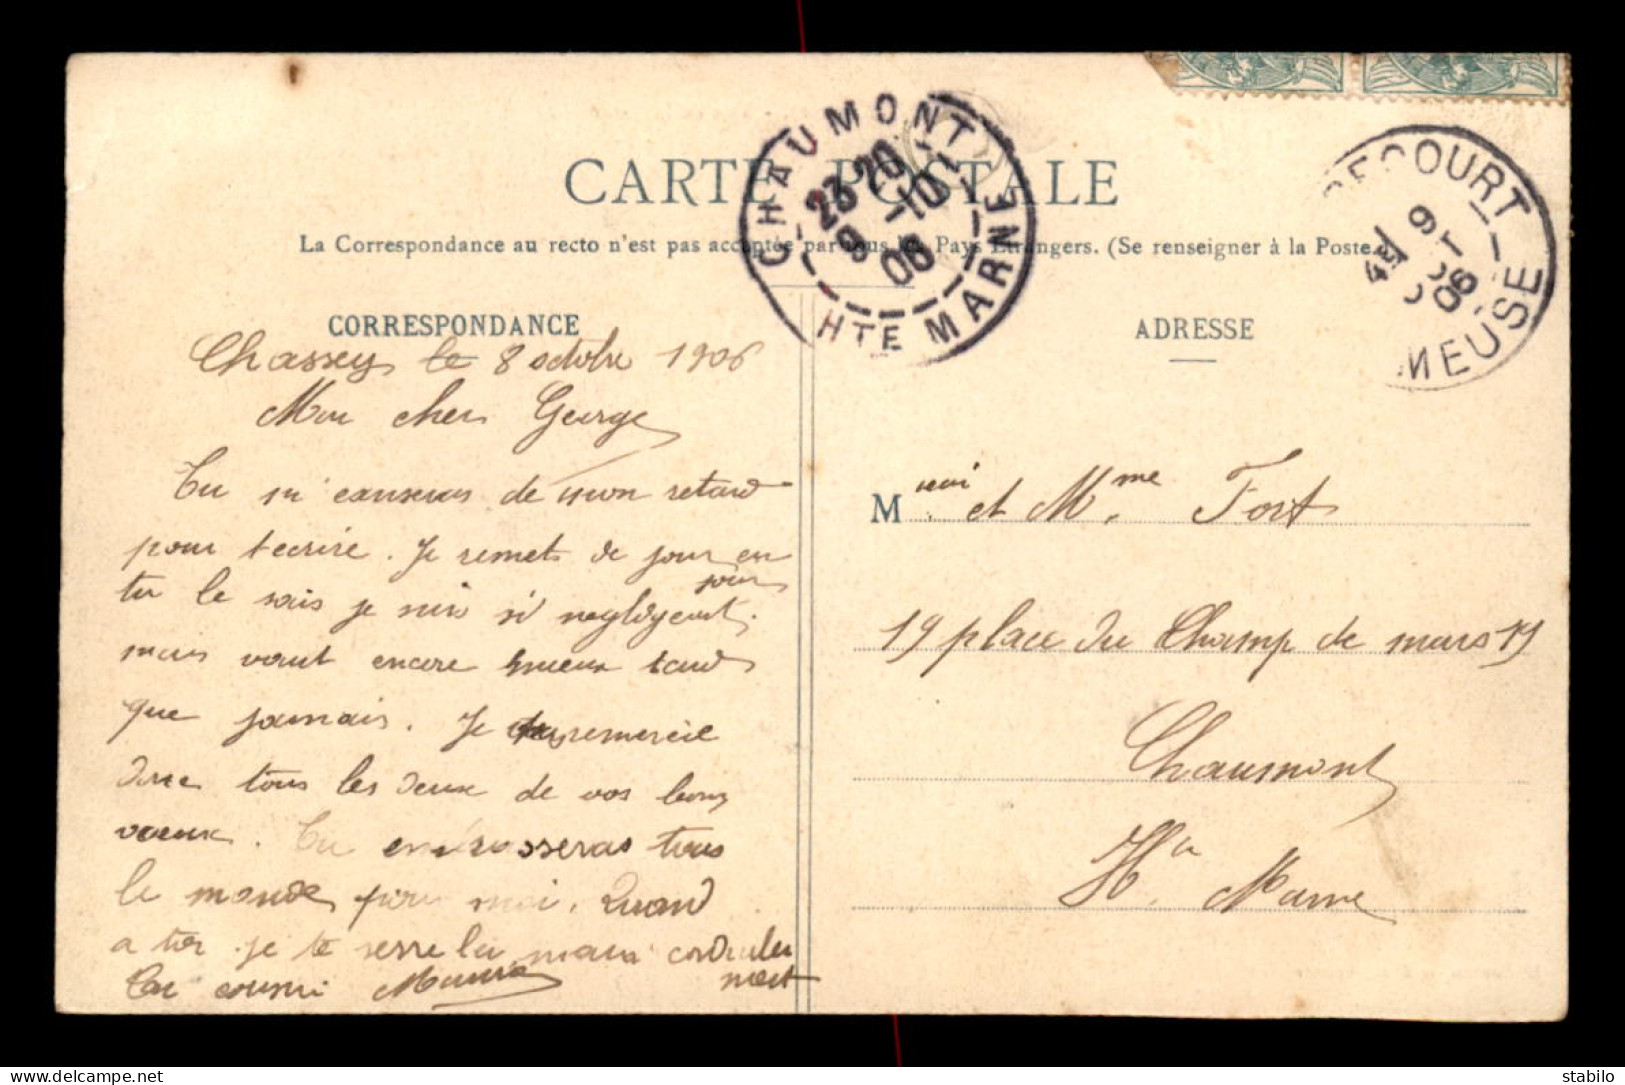 CARTE POSTALE
La Correspondance au recto n'est pas acceptée par tous les Pays Etrangers. (Se renseigner à la Poste.)
CHAUMONT
23·20
9 -10
06
HTE MARNE
COURT
9
06
MEUSE
CORRESPONDANCE
Chassey le 8 octobre 1906
Mon cher George
Tu m'excuseras de mon retard
pour t'ecrire. Je remet de jour en
jour
tu le sais je suis si negligeant.
mais vaut encore mieux tard
que jamais. Je remercie
donc tous les deux de vos bons
voeux. Tu embrasseras tous
le monde pour moi. Quand
a toi je te serre la main cordiale
ment
Ton cousin Maurice
ADRESSE
M et Mme Fort
19 place du Champ de mars 19
Chaumont
Hte Marne
stabilo